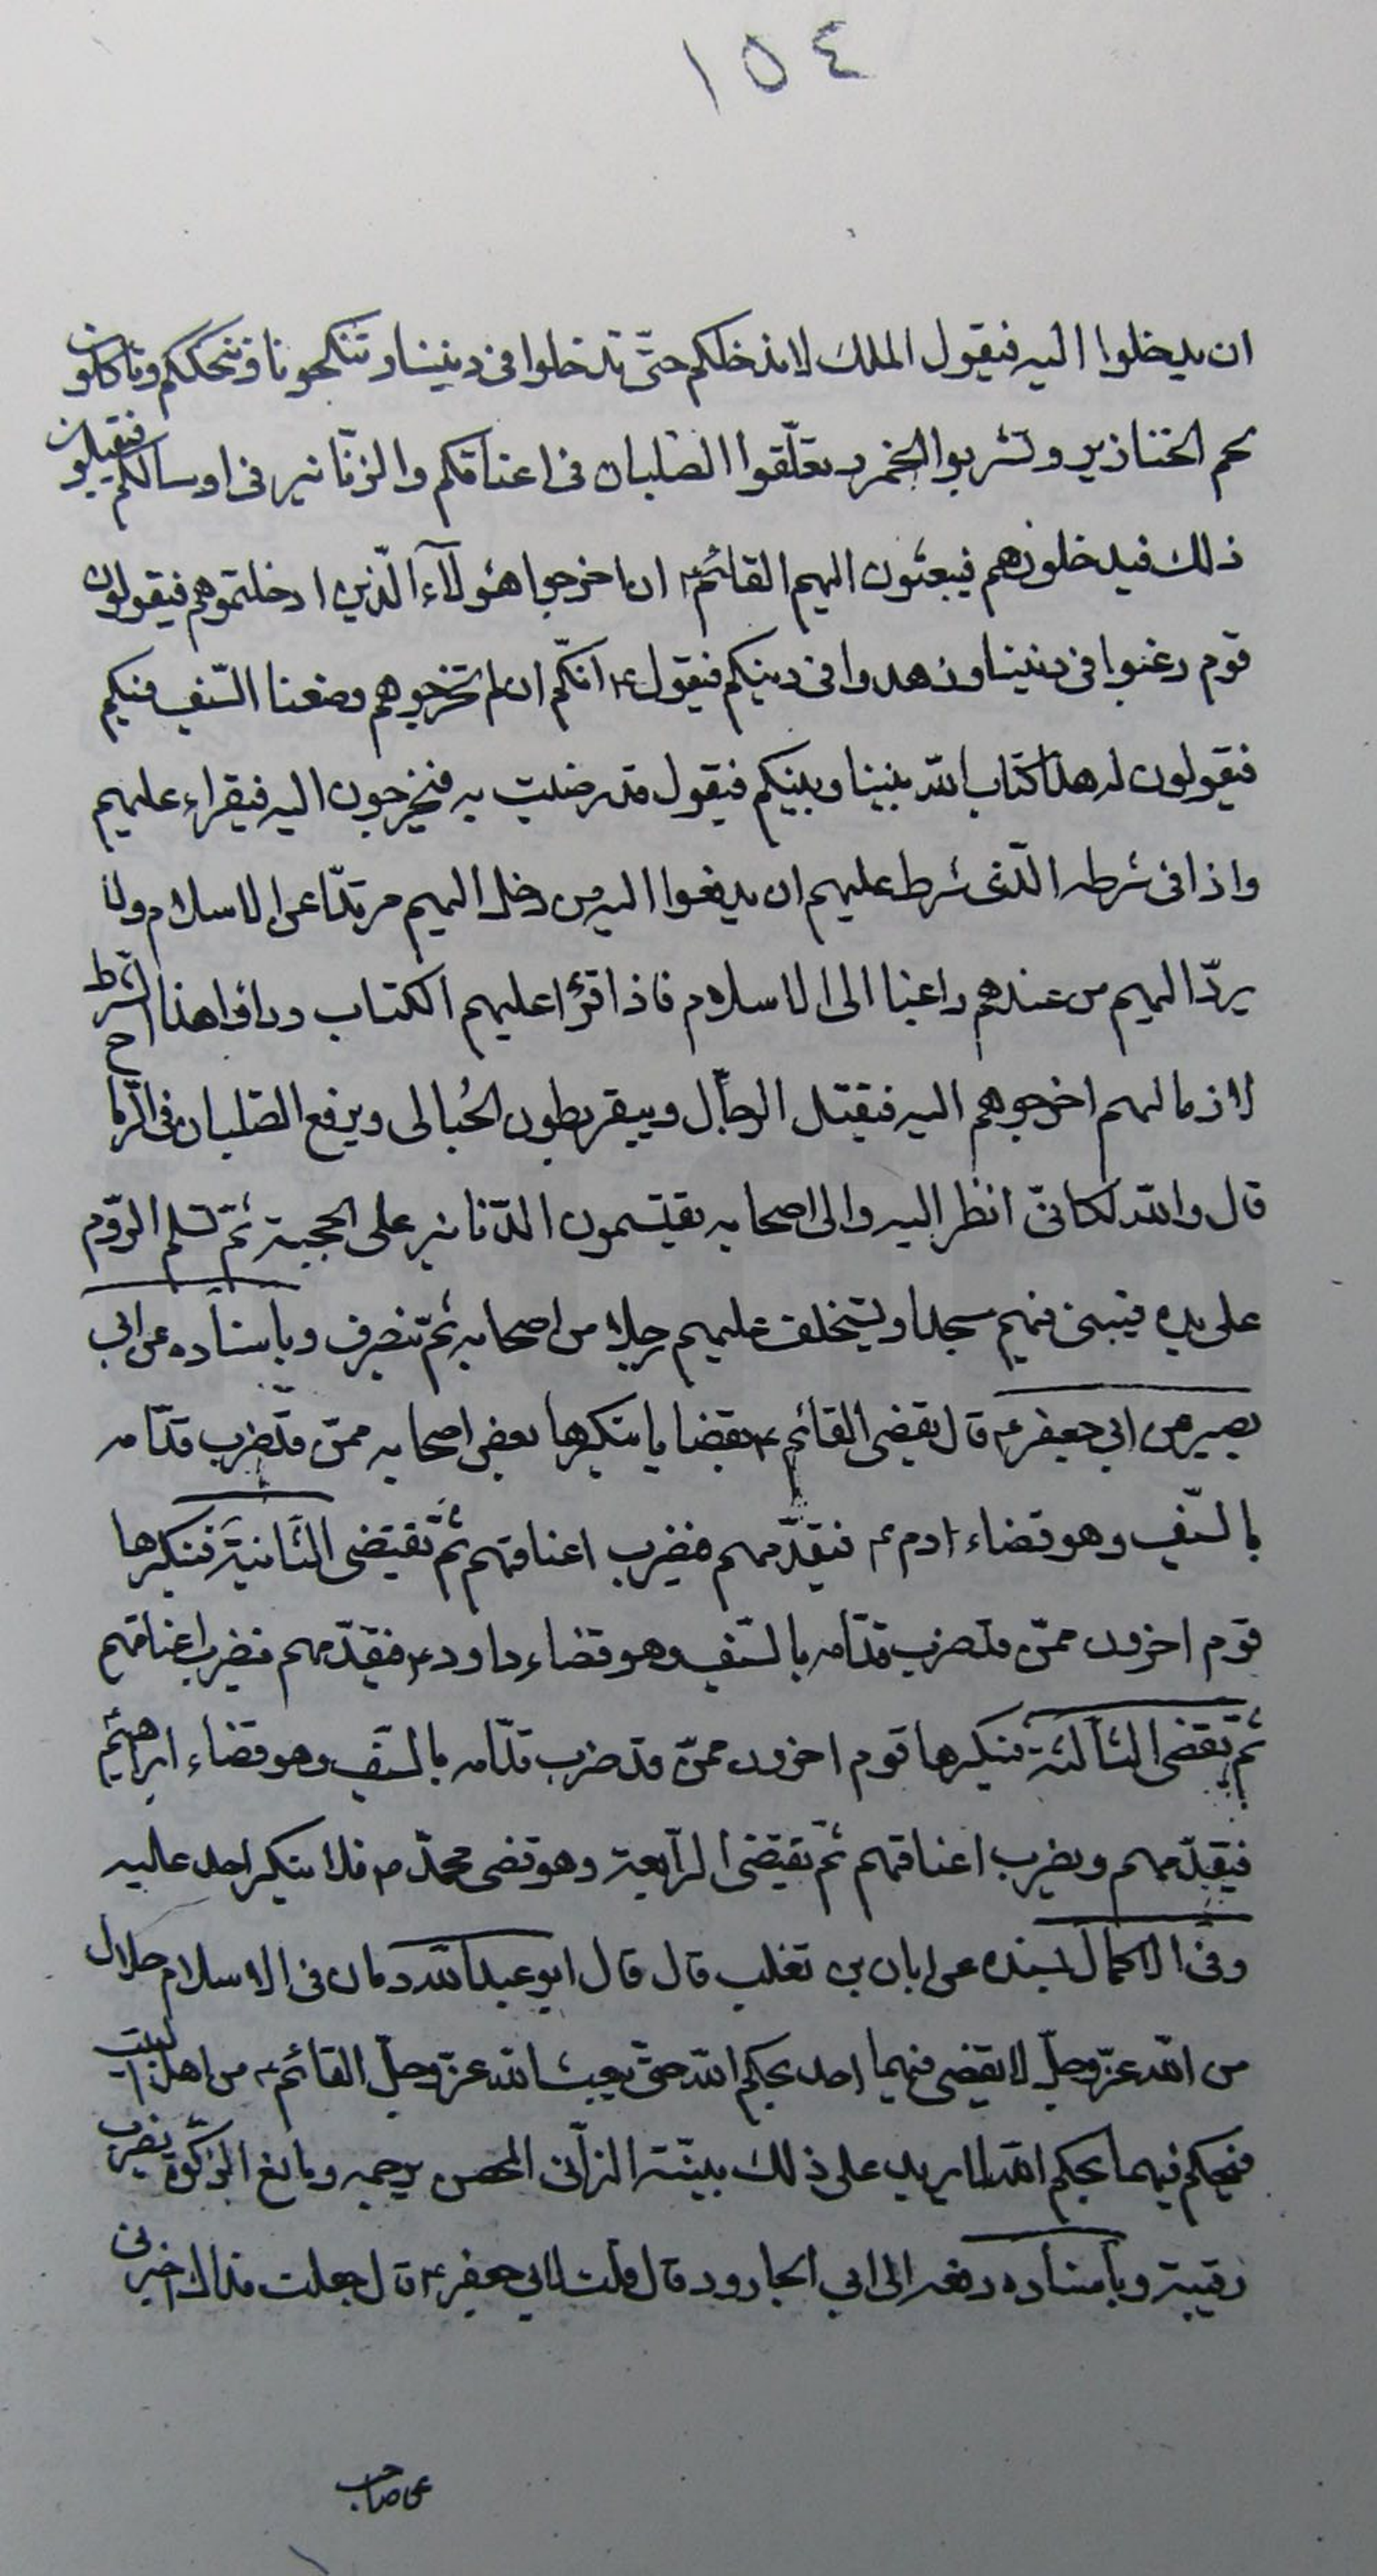 ١٥٤
ان يدخلوا اليه فيقول الملك لا ندخلكم حتّى تدخلوا فى ديننا وتنكحونا وننكحكم وتأكلون
لحم الخنازير وتشربوا الخمر وتعلّقوا الصّلبان فى اعناقكم والزّنانير فى اوساطكم فيقبلون
ذلك فيدخلونهم فيبعثون اليهم القائم ع ان اخرجوا هؤلآء الّذين ادخلتموهم فيقولون
قوم رغبوا فى ديننا وزهدوا فى دينكم فيقول ع انّكم ان لم تخرجوهم وضعنا السّيف فيكم
فيقولون له هذا كتاب الله بيننا وبينكم فيقول قد رضيت به فيخرجون اليه فيقراء عليهم
واذا فى شرطه الّذى شرط عليهم ان يدفعوا اليه من دخل اليهم مرتدّا عن الاسلام ولا
يردّ اليهم من عندهم راغبا الى الاسلام فاذا قرؤا عليهم الكتاب وراوا هذا الشرط
لازما لهم اخرجوهم اليه فيقتل الرجال ويبقر بطون الحُبالى ويرفع الصّلبان فى الرّما
ح
قال والله لكانّى انظر اليه والى اصحابه يقتسمون الدّنانير على الحجبة ثمّ تسلم الرّوم
على يده فيبنى فيهم مسجدا ويستخلف عليهم رجلا من اصحابه ثمّ ينصرف وباسناده عن ابى
بصير عن ابى جعفر ع قال يقضى القائم ع بقضايا ينكرها بعض اصحابه ممّن قد ضرب قدّامه
بالسّيف وهو قضاء ادم ع فيقدّمهم فيضرب اعناقهم ثمّ يقضى الثّانية فينكرها
قوم اخرون ممّن قد ضرب قدّامه بالسّيف وهو قضاء داود ع فيقدّمهم فيضرب اعناقهم
ثمّ يقضى الثّالثة فينكرها قوم اخرون ممّن قد ضرب قدّامه بالسّيف وهو قضاء ابراهيم
فيقدّمهم ويضرب اعناقهم ثمّ يقضى الرّابعة وهو قضى محمّد ص فلا ينكر احد عليه
وفى الاكمال بسنده عن ابان بن تغلب قال قال ابو عبد الله دمان فى الاسلام حلال
من الله عزّ وجلّ لا يقضى فيهما احد بحكم الله حتّى يبعث الله عزّ وجلّ القائم ع من اهل البيت
فيحكم فيهما بحكم الله لا يريد على ذلك بيّنة الزّانى المحصن يرجمه ومانع الزّكوة يضرب
رقبته وباسناده رفعه الى ابى الجارود قال قلت لابى جعفر ع قال جعلت فداك اخبرنى
عن صاحب